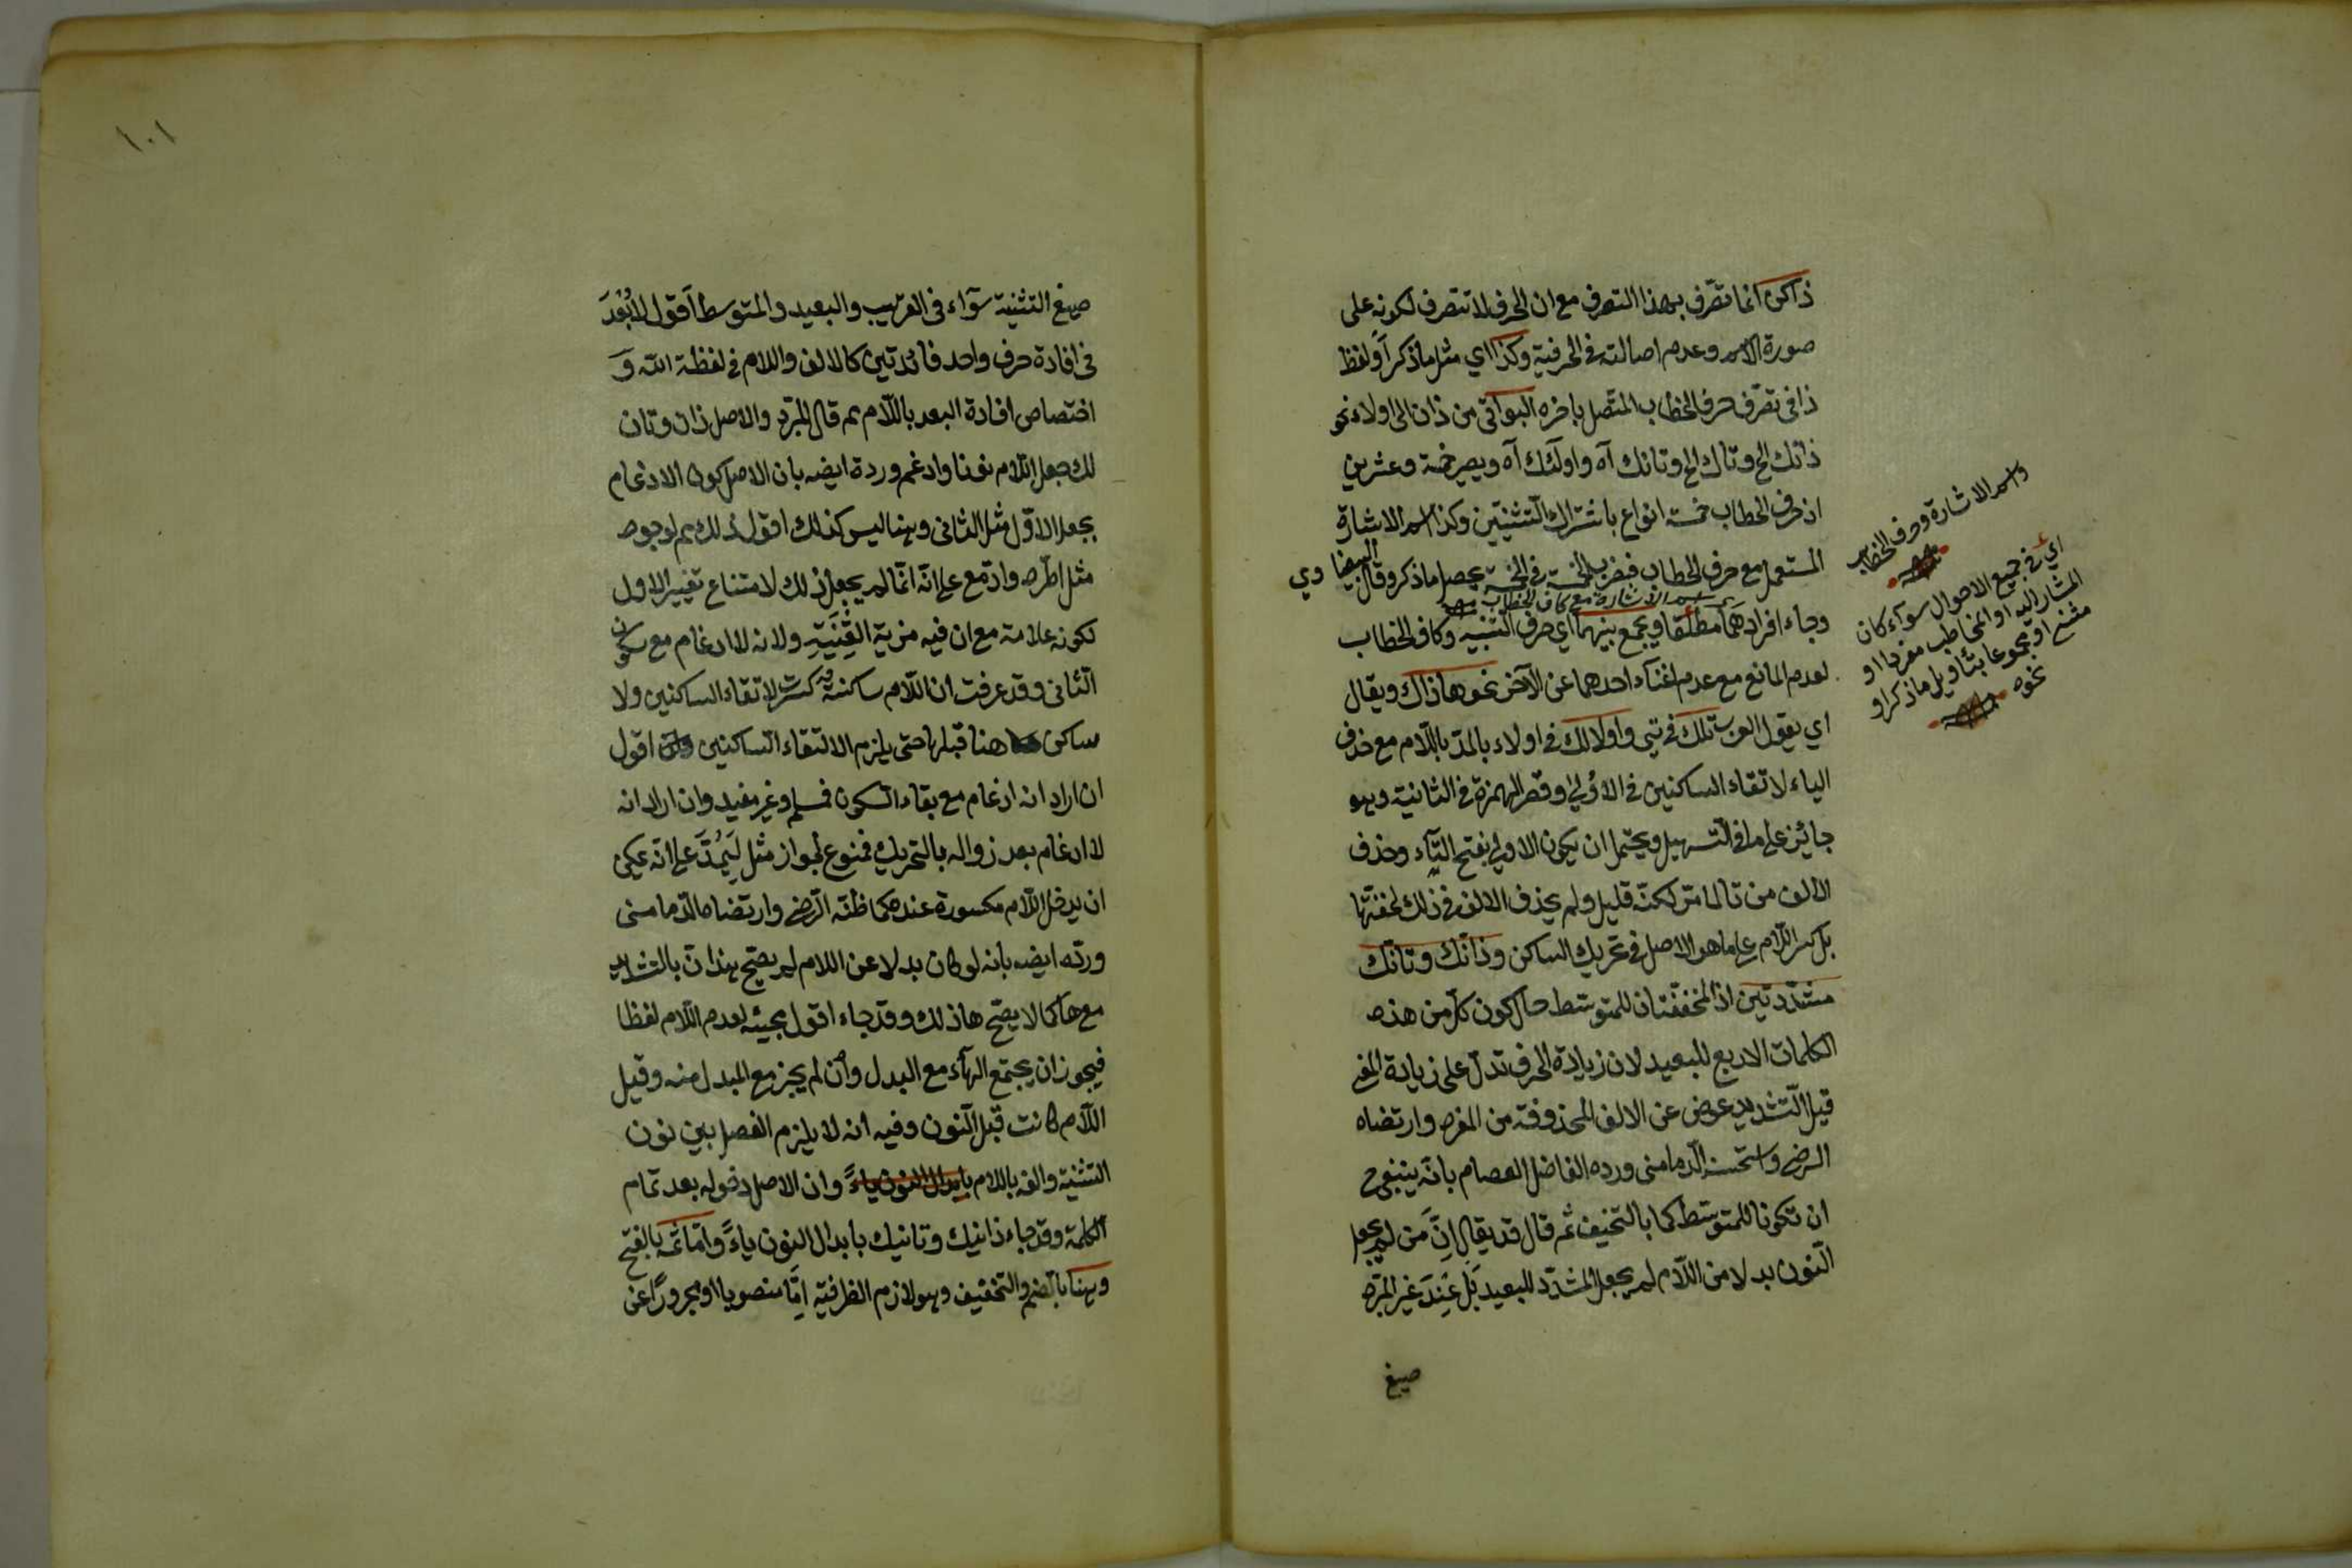 ذاكن انما تصّرف بهذا التصرف مع ان الحرف لا تتصرف لكونه على
صورة الاسم وعدم اصالته في الحرفية وكذا اي مثل ما ذكر اولفظ
ذا في تصّرف حرف الخطاب المتّصل باخره البواقى من ذان الى اولاء نحو
ذانك الخ وتاك الخ وتانك آه واولئك آه ويصير خمسة وعشرين
اذ حرف الخطاب خمسة انواع باشتراك التثنيتين وكذا اسم الاشارة
المستعمل مع حرف الخطاب فبضرب الخمسة في الخمسة يحصل ما ذكر وقال البيضاوي
اسم الاشارة مع كاف الخطاب
وجاء افرادهما مطلقا ويجمع بينهما اي حرف التنبيه وكاف الخطاب
لعدم المانع مع عدم اغناء احدهما عن الآخر نحو هاذاك ويقال
اي يقول العرب تلك في تي واولالك في اولاء بالمدّ باللّام مع حذف
الياء لاتقاء الساكنين في الاولي وقصر الهمزة في الثانية وهو
جائز على ما في التسهيل ويحتمل ان يكون الاولي بفتح التاء وحذف
الالف من تا لما مرّ لكنّه قليل ولم يحذف الالف في ذلك لخفتها
بل كسر اللّام على ما هو الاصل في تحريك الساكن وذانّك وتانّك
مشدّدتين اذ المخففتان للمتوسّط حال كون كلّ من هذه
الكلمات الاربع للبعيد لان زيادة الحرف تدلّ على زيادة المعنى
قيل التّشديد عوض عن الالف المحذوفة من المفرد وارتضاه
الرضي واستحسنه الّدمامنى ورده الفاضل العصام بانّه ينبغي ح
ان تكونا للمتوسّط كما بالتخفيف ثم قال قد يقال اِنَّ من لم يجعل
النّون بدلا من اللّام لم يجعل المشدّد للبعيد بَل عِندَ غير المبّرد
صيغ
واسم الاشارة وحرف الخطاب
اي في جميع الاحوال سوآء كان
المشار اليه او المخاطب مفردا او
مثنى او مجموعا بتاويل ما ذكر او
نحوه
١٠١
صيغ التثنية سوآء في القريب والبعيد والمتوسط اقول لا بُعْدَ
في افادة حرف واحد فائدتين كالالف واللام في لفظة الله وَ
اختصاص افادة البعد باللّام ثم قال المبّرد والاصل ذان وتان
لك جعل اللّام نونا وادغم وردة ايضه بان الاصل كون الادغام
بجعل الاوّل مثل الثانى وهنا ليس كذلك اقول ذلك ثم لوجود
مثل اطّرد وادّمع على انّه انّما لم يجعل ذلك لامتناع تغيير الاول
لكونه علامة مع ان فيه مزية الغِنّيَةِ ولانه لا ادغام مع سكون
الثانى وقد عرفت ان اللّام ساكنة كسرت لاتقاء الساكنين ولا
ساكن هنا قبلها حتى يلزم الالتقاء السّاكنين اقول
ان اراد انه ادغام مع بقاء السكون فمسلم وغير مفيد وان اراد انه
لا ادغام بعد زواله بالتحريك فممنوع لجواز مثل لَيَمُدَّ على انّه يمكن
ان يدخل اللّام مكسورة عنده كما ظنّه الرّضي وارتضاه الدّمامنى
وردّه ايضه بانه لو كان بدلا عن اللام لم يصّح هذانّ بالتشديد
مع ها كما لا يصّح هاذلك وقد جاء اقول مجيئه لعدم اللّام لفظا
فيجوز ان يجتمع الهآء مع البدل وان لم يجز مع المبدل منه وقيل
اللّام كانت قبل النّون وفيه انه لا يلزم الفصل بين نون
التثنية والفه باللام بابدال النون ياءً وان الاصل دخوله بعد تمام
الكلمة وقد جاء ذانيك وتانيك بابدال النون ياءً وامّا ثمّه بالفتح
وهنا بالضّم والتخفيف وهو لازم الظرفية اِمَّا منصوبا او مجرورًا عن